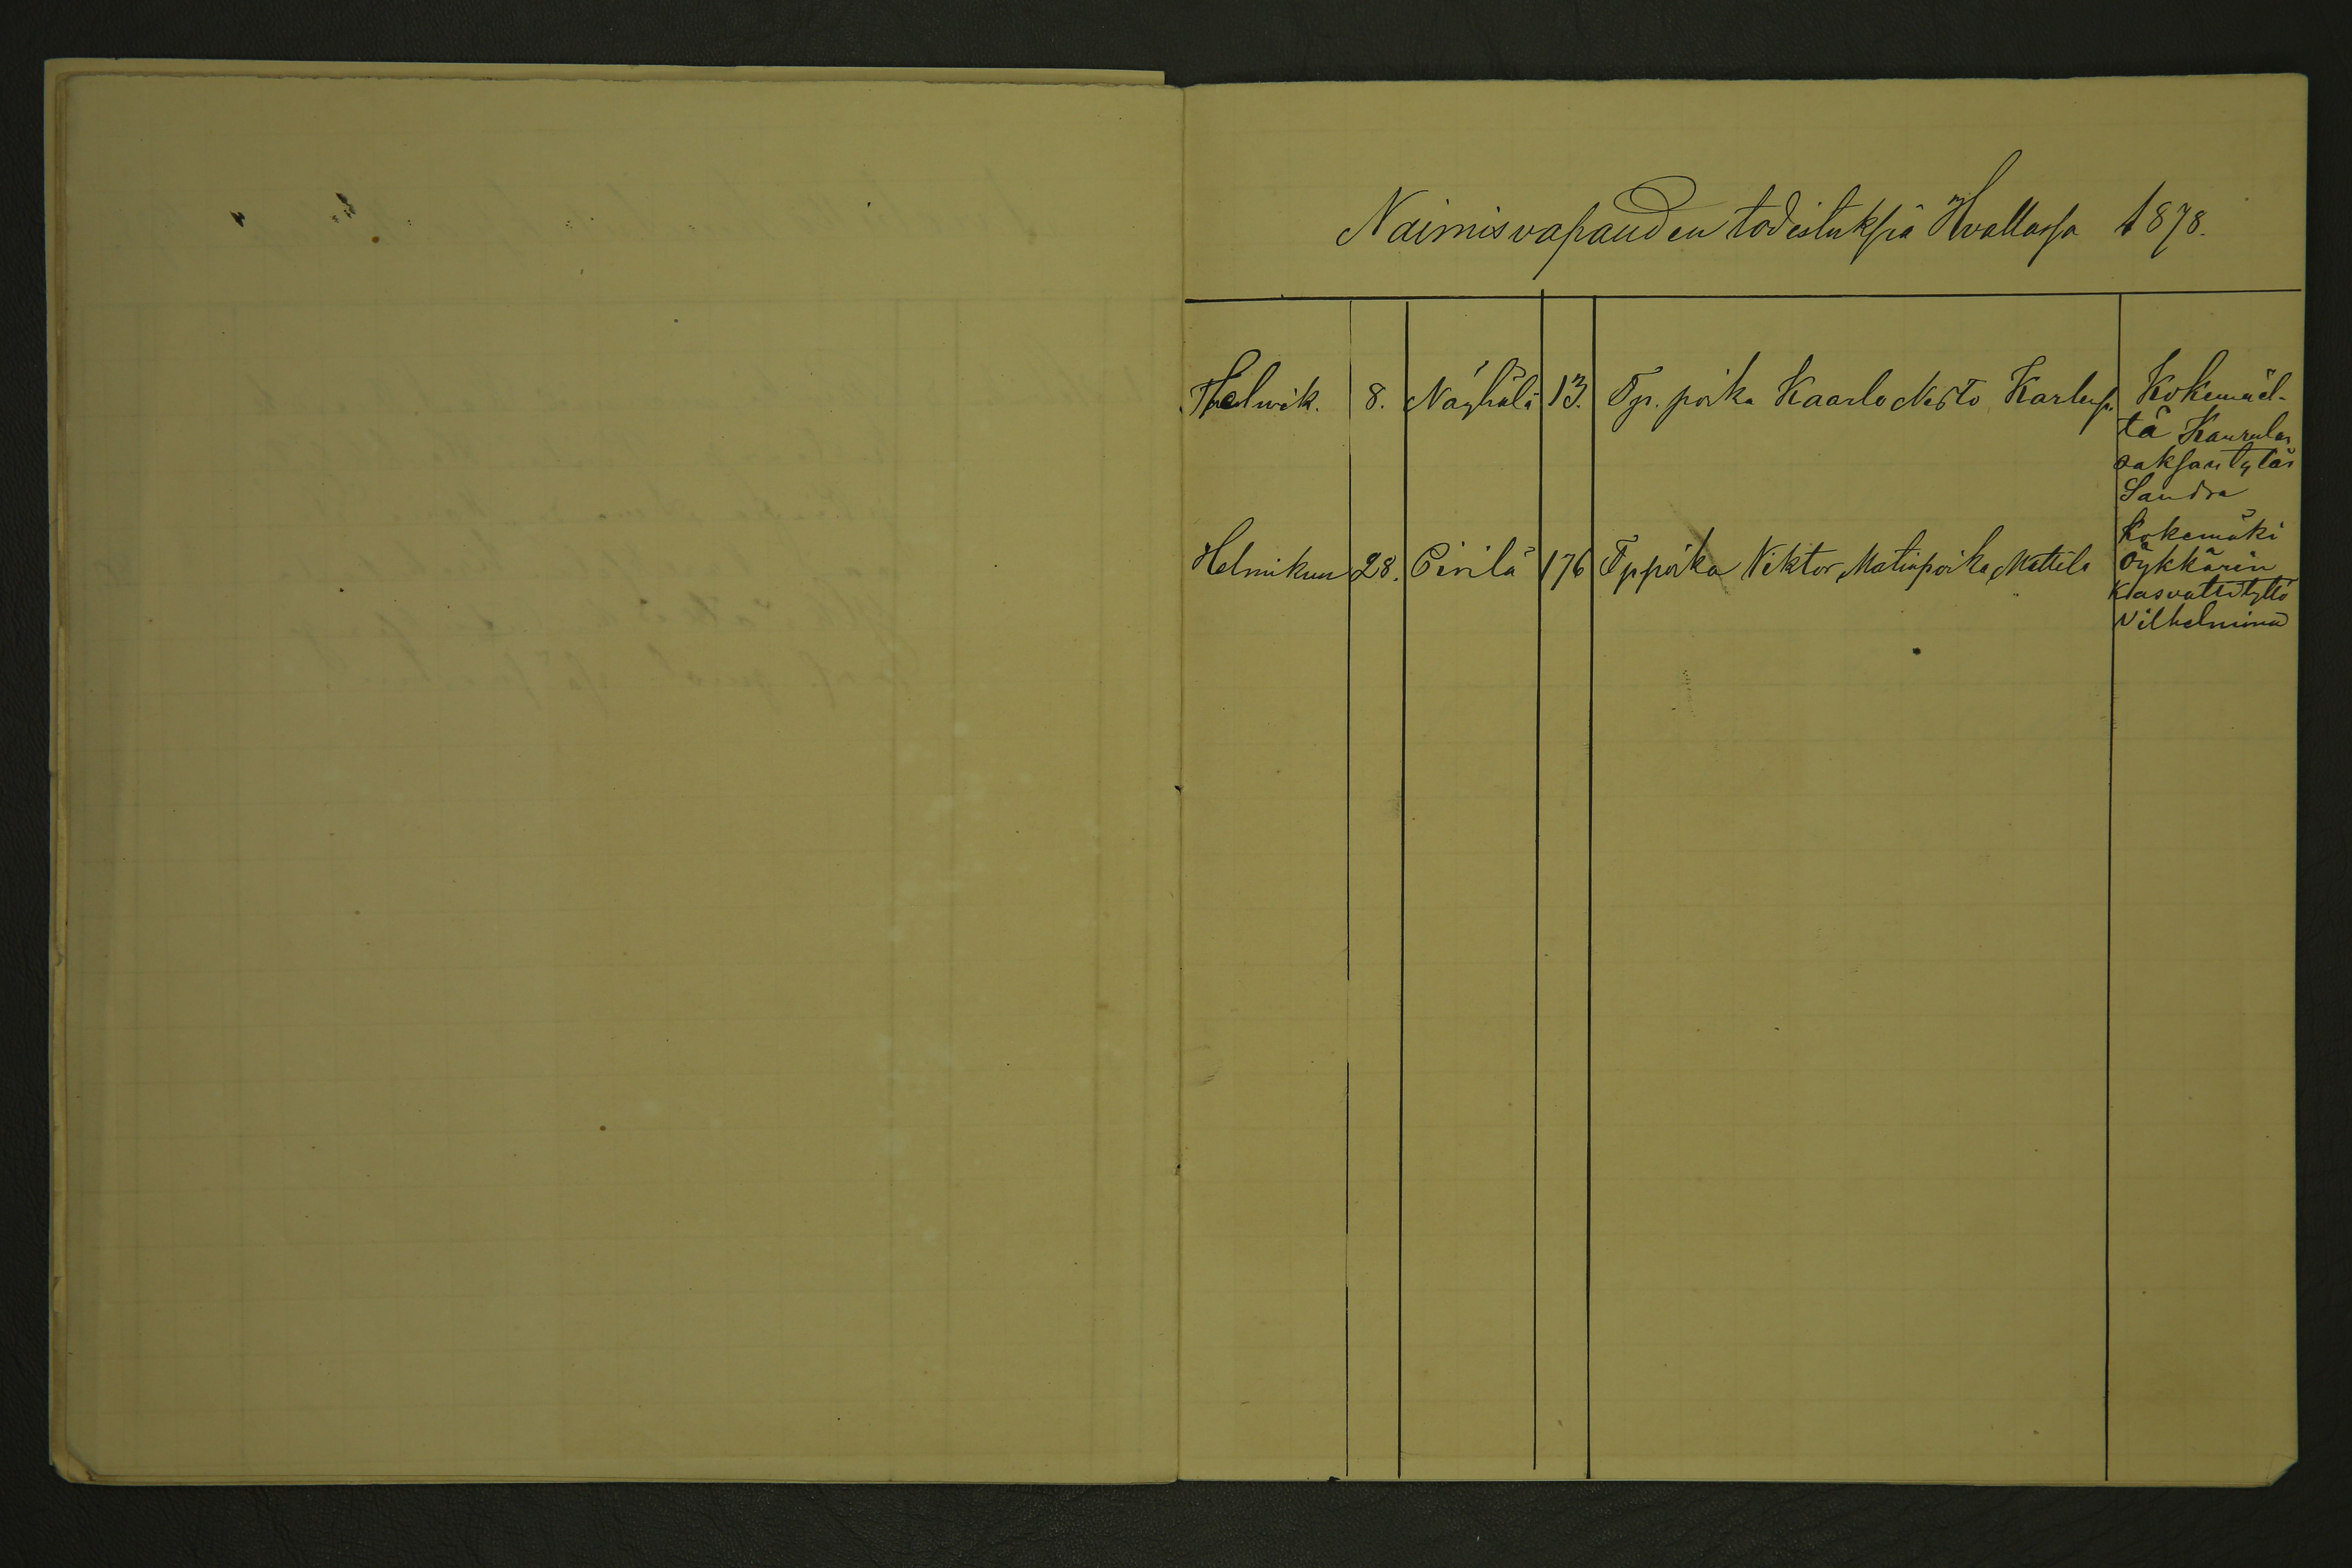 Naimisvapauden todistuksia Hvallassa 1878.
Helmik. 8. Näyhälä 13. Tp. poika Kaarlo Nesto Karlenp. Kokemäel-
tä Kaurulan
saksan tytär
Sandra
Helmikuu 28. Pirilä 176 Tp poika Viktor Matinpoika Mattila Kokemäki
Öykkärin
Kasvattityttö
Vilhelmina